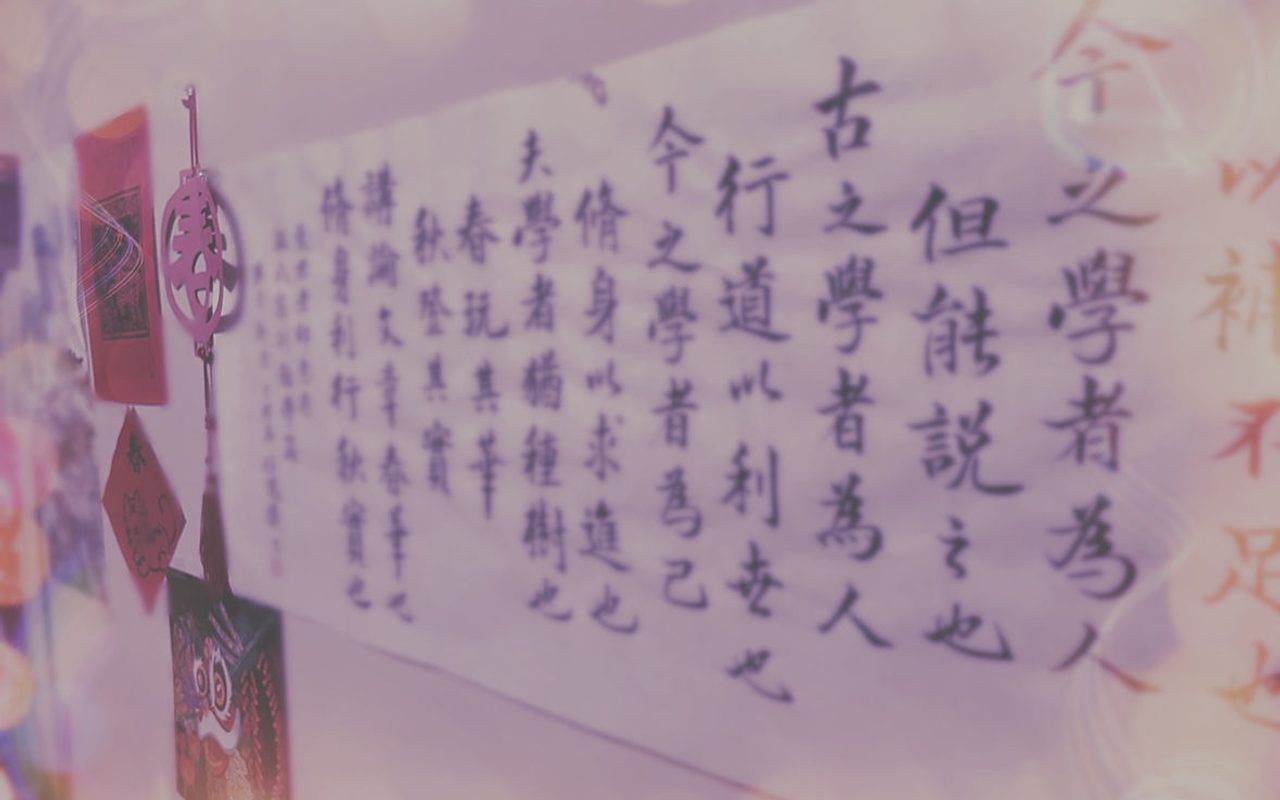 以補不足也
今之學者為人
但能說之也
古之學者為人
行道以利世也
今之學者為己
脩身以求進也
夫學者猶種樹也
春玩其華
秋登其實
講論文章春華也
脩身利行秋實也
春
春